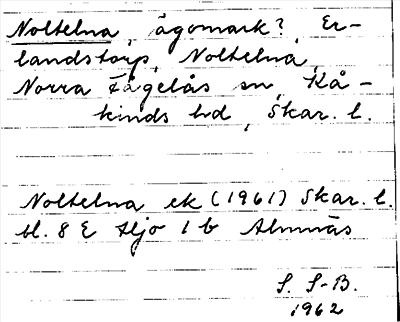 Noltelna, ägomark?, Er-
landstorp, Noltelna,
Norra Fågelås sn, Kå-
kinds hd, Skar. l.
Noltelna ek (1961) Skar. l.
bl. 8 E Hjo 1 b Almnäs
S. S-B.
1962